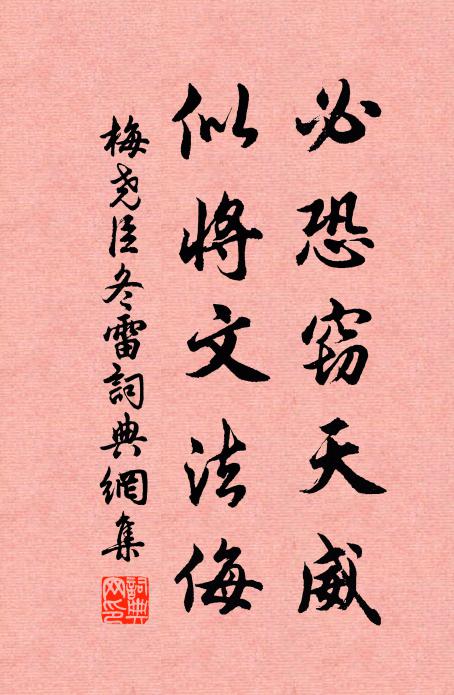 必恐窃天威
似将文法侮
梅尧臣冬雷詞典網集
詞典
网印